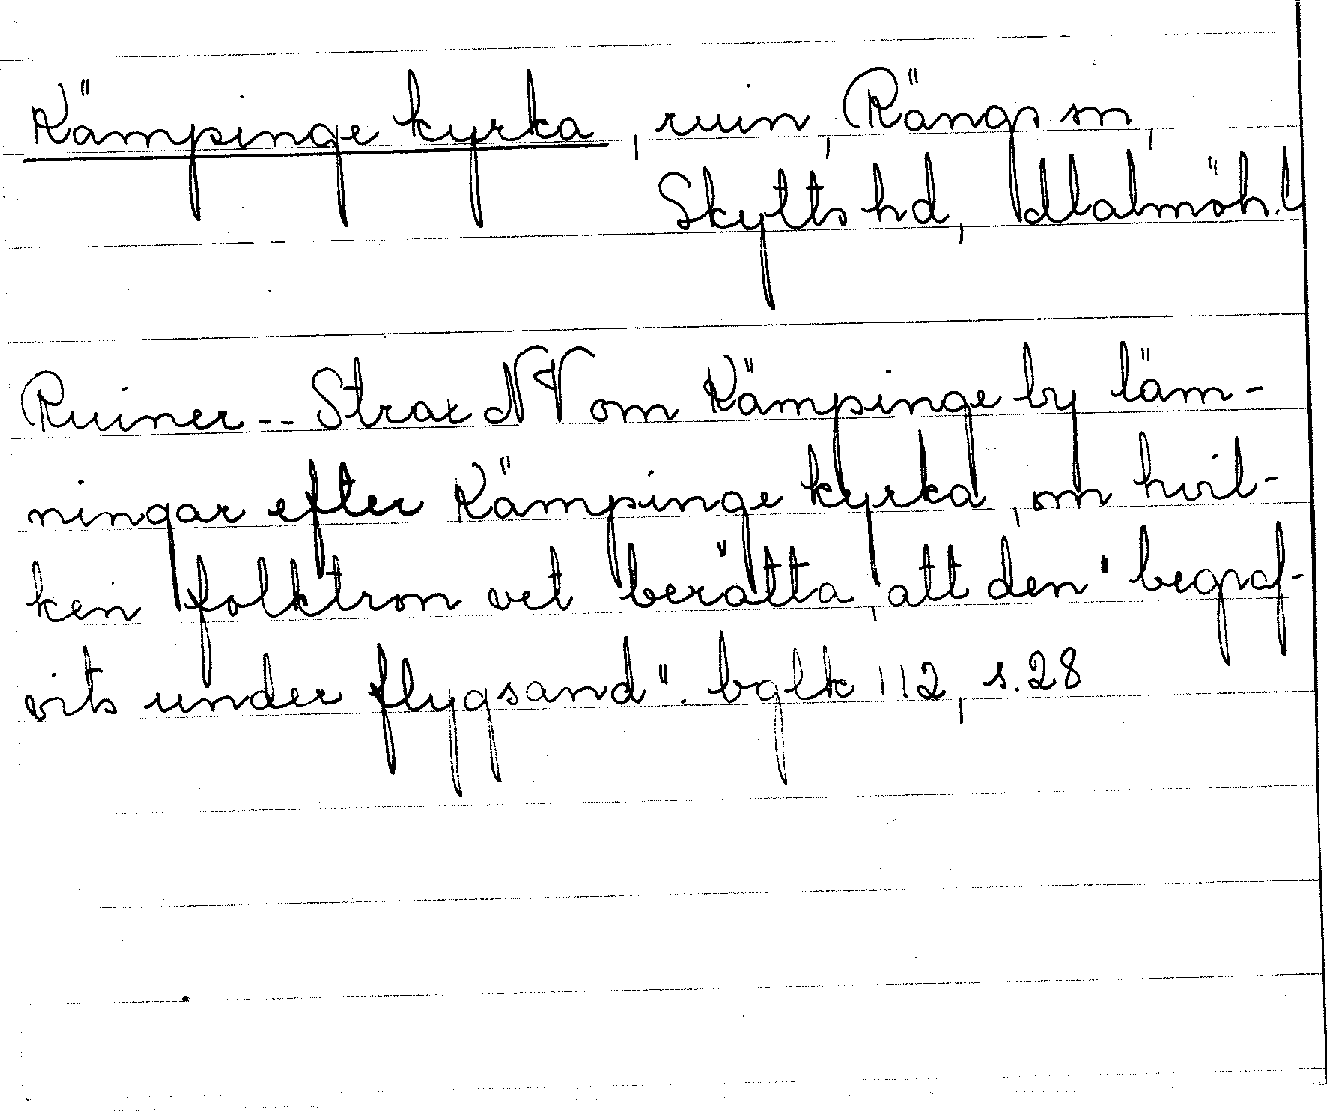 Kämpinge kyrka, ruin, Rängs sn,
Skytts hd, Malmöh.l
Ruiner -- Strax NV om Kämpinge by läm-
ningar efter Kämpinge kyrka, om hvil-
ken folktron vet berätta, att den "begraf-
vits under flygsand". bglk 112, s. 28